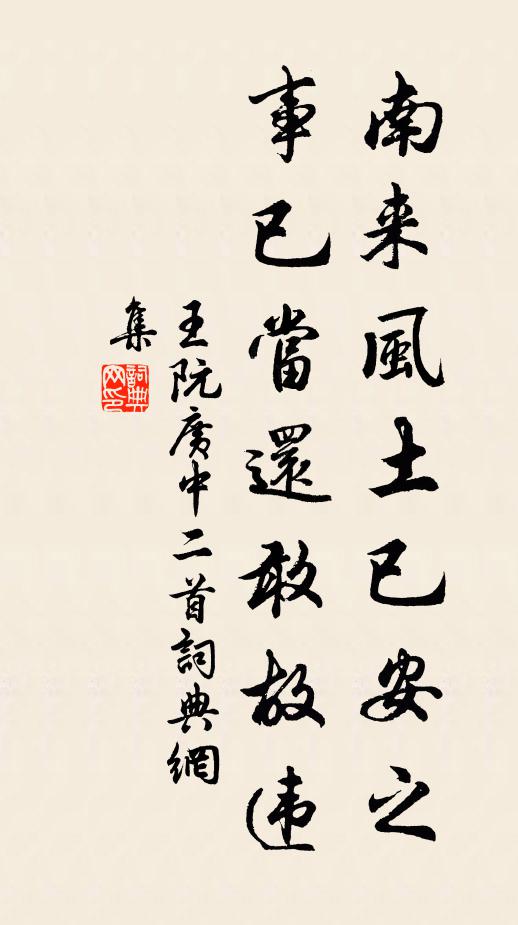 南来風土已安之
事已當還敢故违
王阮廣中二首詞典網
集
詞典
网印